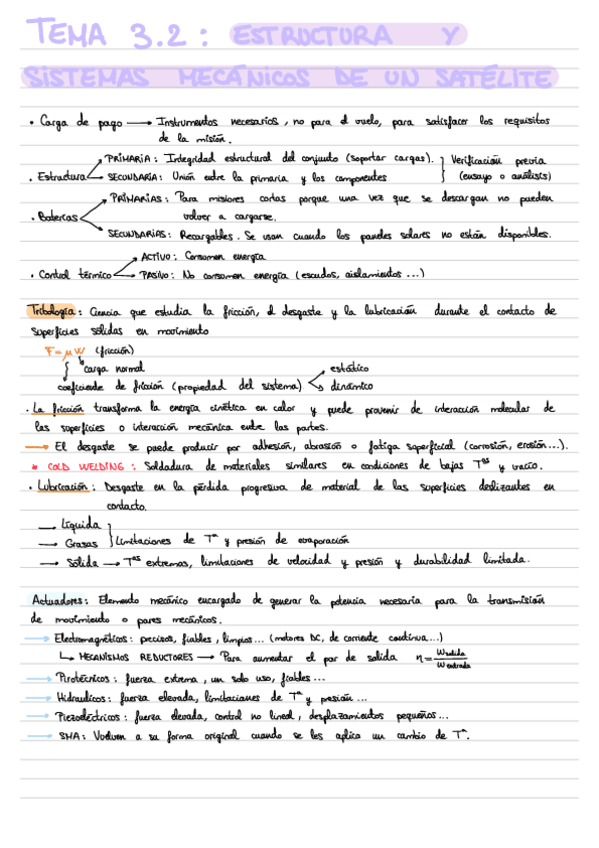 TEMA 3.2: ESTRUCTURA Y
SISTEMAS MECÁNICOS DE UN SATÉLITE
• Carga de pago → Instrumentos necesarios, no para el vuelo, para satisfacer los requisitos
de la misión.
• Estructura PRIMARIA: Integridad estructural del conjunto (soportar cargas). } Verificación previa
SECUNDARIA: Unión entre la primaria y los componentes (ensayo o análisis)
• Baterías PRIMARIAS: Para misiones cortas porque una vez que se descargan no pueden
volver a cargarse.
SECUNDARIAS: Recargables. Se usan cuando los paneles solares no están disponibles.
• Control térmico ACTIVO: Consumen energía
PASIVO: No consumen energía (escudos, aislamientos...)
Tribología: Ciencia que estudia la fricción, el desgaste y la lubricación durante el contacto de
superficies sólidas en movimiento
F=μW (fricción)
carga normal
coeficiente de fricción (propiedad del sistema) estático
dinámico
• La fricción transforma la energía cinética en calor y puede provenir de interacción molecular de
las superficies o interacción mecánica entre las partes.
→ El desgaste se puede producir por adhesión, abrasión o fatiga superficial (corrosión, erosión...).
* COLD WELDING: Soldadura de materiales similares en condiciones de bajas Tªs y vacío.
• Lubricación: Desgaste en la pérdida progresiva de material de las superficies deslizantes en
contacto.
— Líquida
— Grasas } Limitaciones de Tª y presión de evaporación
— Sólida → Tªs extremas, limitaciones de velocidad y presión y durabilidad limitada.
Actuadores: Elemento mecánico encargado de generar la potencia necesaria para la transmisión
de movimiento o pares mecánicos.
→ Electromagnéticos: precisos, fiables, limpios... (motores DC, de corriente continua...)
↳ MECANISMOS REDUCTORES → Para aumentar el par de salida η = Wsalida / Wentrada
→ Pirotécnicos: fuerza extrema, un solo uso, fiables...
→ Hidraulicos: fuerza elevada, limitaciones de Tª y presión...
→ Piezoeléctricos: fuerza elevada, control no lineal, desplazamientos pequeños...
→ SMA: Vuelven a su forma original cuando se les aplica un cambio de Tª.